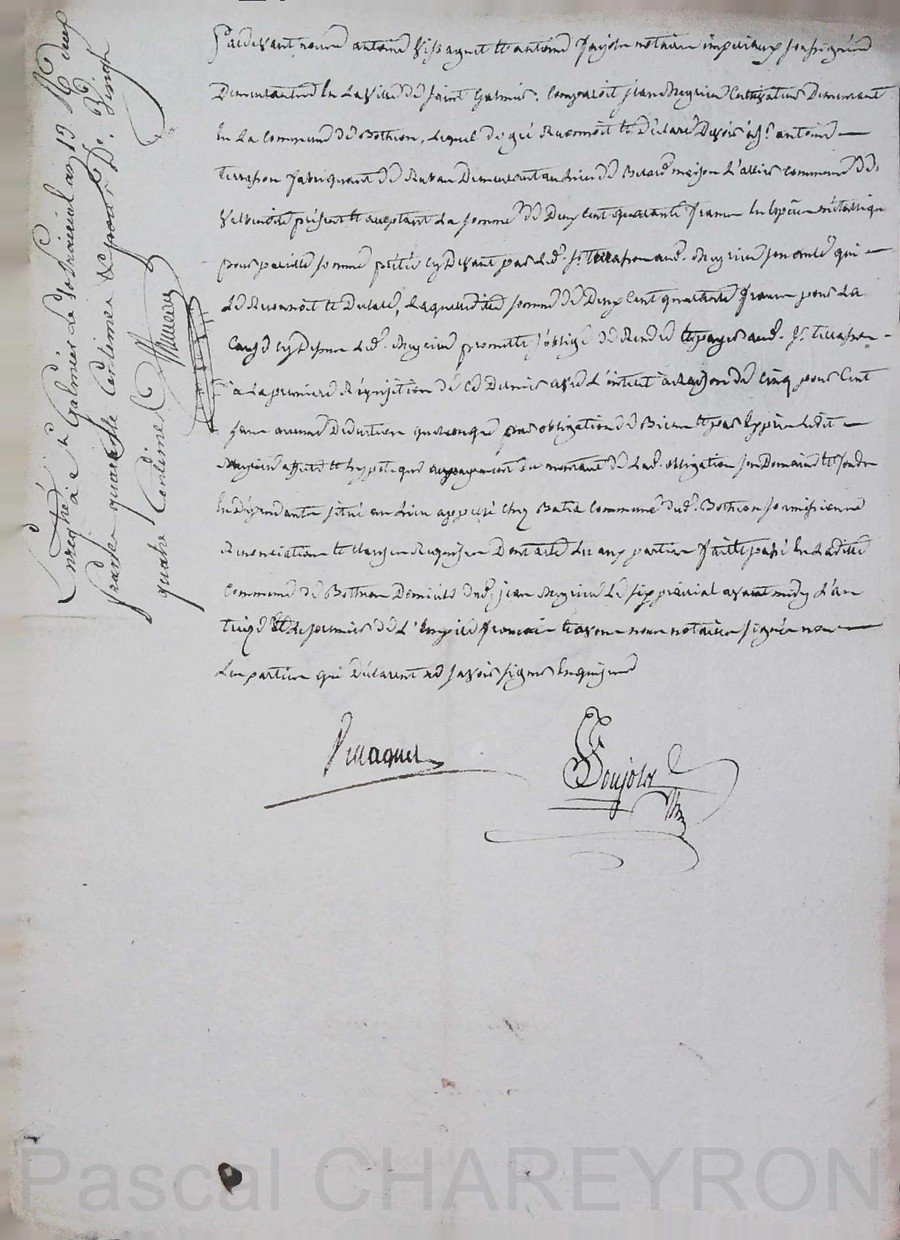 Pardevant nous antoine Vissaguet et antoine Jujols notaires imperiaux soussignés
Demeurantes En La Ville de saint Galmier. Comparoit jean Meyrieu Cultivateur Demeurant
En La Commune de Botheon, Lequel de gré Reconnoit et Declare Devoir à Sr. antoine
terrasson fabriquant de Ruban Demeurant au Lieu de maison Commune de
Velbenoite présent et acceptant La somme de Deux Cent quarante francs En Espece métallique
pour pareille somme prêtée cy Devant par Led. Sr. terrasson aud. Meyrieu qui
Le Reconnoit et Declare, Laquelle ditte somme de Deux Cent quarante francs pour La
Cause cy Dessus Led. Meyrieu promet et s'oblige de Rendre et payer aud. Sr. terrasson
à La premiere Réquisition de Ce Dernier avec L'interet à Raison de Cinq pour Cent
sans aucune Deduction quelconque pour obligation de Biens et par Exprès Ledit
Meyrieu affecte et hypoteque au payement du montant de Lad. obligation son Domaine et fonds
En Dependants situé au Lieu appellé Chez Batia Commune dud. Botheon soumissions
Renonciation et Clauses Requises Dont acte Lu aux parties fait et passé En Laditte
Commune de Botheon Domicile dud. jean Meyrieu Le six prairial avant midy L'an
treize Et Le premier de L'Empire francois et avons nous notaires signés non
Les parties qui Déclarent ne savoir signer Enquises
Vissaguet
Jujols
Enregistré à St Galmier Le sept prairial an 13 Reçu Deux
francs quarante Centimes & pour Le Dixme Vingt
quatre Centimes
Pascal CHAREYRON